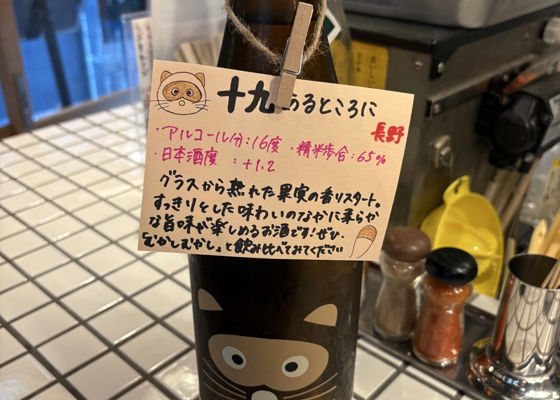 十九 あるところに
長野
・アルコール分：16度 ・精米歩合：65%
・日本酒度 ：+1.2
グラスから熟れた果実の香りスタート。
すっきりとした味わいのなかに柔らか
な旨味が楽しめるお酒です！ぜひ、
「むかしむかし」と飲み比べてみてください